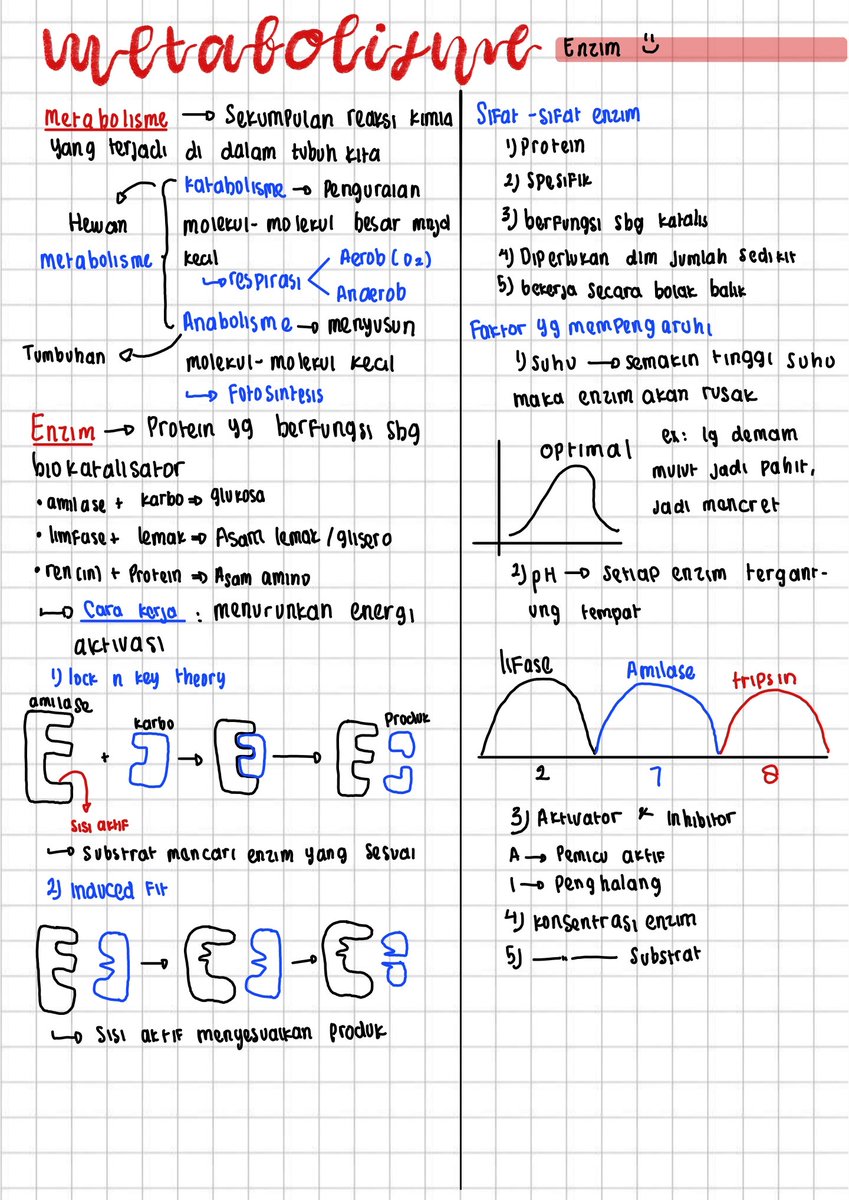 metabolisme
Enzim
Metabolisme → Sekumpulan reaksi kimia
yang terjadi di dalam tubuh kita
Katabolisme → Penguraian
Hewan
molekul-molekul besar mnjd
metabolisme
kecil
↳ respirasi
Aerob (O2)
Anaerob
Anabolisme → menyusun
Tumbuhan
molekul-molekul kecil
↳ Fotosintesis
Enzim → Protein yg berfungsi sbg
biokatalisator
• amilase + karbo ⇒ glukosa
• limfase + lemak ⇒ Asam lemak / glisero
• ren(in) + Protein ⇒ Asam amino
↳ Cara kerja : menurunkan energi
aktivasi
1) lock n key theory
amilase
karbo
Produk
+
sisi aktif
↳ Substrat mancari enzim yang sesuai
2) Induced Fit
↳ Sisi aktif menyesuaikan produk
Sifat-sifat enzim
1) Protein
2) Spesifik
3) berfungsi sbg katalis
4) Diperlukan dlm jumlah sedikit
5) bekerja secara bolak balik
Faktor yg mempengaruhi
1) Suhu → semakin tinggi suhu
maka enzim akan rusak
optimal
ex: lg demam
mulut jadi pahit,
jadi mencret
2) pH → setiap enzim tergant-
ung tempat
lifase
Amilase
tripsin
2
7
8
3) Aktivator & Inhibitor
A → Pemicu aktif
I → Penghalang
4) konsentrasi enzim
5) —〃— Substrat